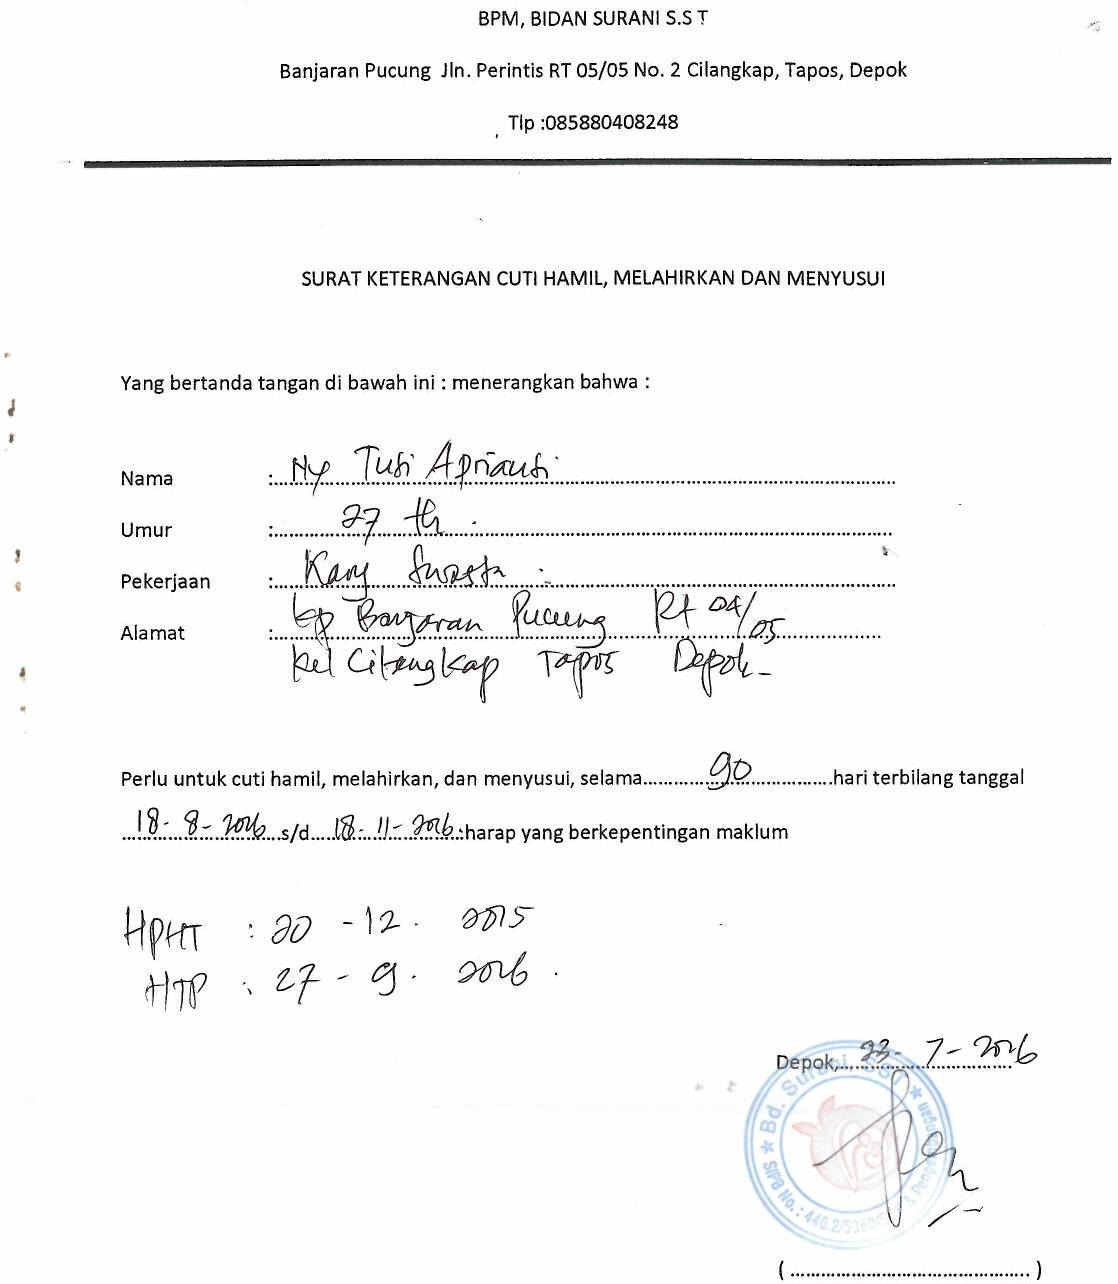 BPM, BIDAN SURANI S.S T
Banjaran Pucung Jln. Perintis RT 05/05 No. 2 Cilangkap, Tapos, Depok
Tlp :085880408248
SURAT KETERANGAN CUTI HAMIL, MELAHIRKAN DAN MENYUSUI
Yang bertanda tangan di bawah ini : menerangkan bahwa :
Nama : Ny Tuti Aprianti
Umur : 27 th
Pekerjaan : Kary Swasta
Alamat : kp Banjaran Pucung Rt 04/05
kel Cilangkap Tapos Depok
Perlu untuk cuti hamil, melahirkan, dan menyusui, selama 90 hari terbilang tanggal
18-8-2016 s/d 18-11-2016 harap yang berkepentingan maklum
HPHT : 20-12. 2015
HTP : 27-9. 2016.
Depok, 23-7-2016
Bd. Surani, SST
SIPB No. : 446.2/5360
(.................................................)